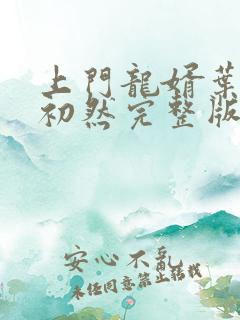 上門龍婿葉
初然完整版
安心不亂
未经同意禁止转载